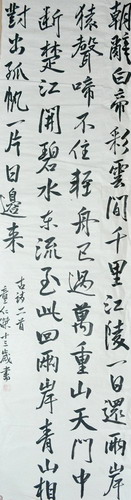 朝辭白帝彩雲間千里江陵一日還兩岸
猿聲啼不住輕舟已過萬重山天門中
斷楚江開碧水東流至此回兩岸青山相
對出孤帆一片日邊来
古詩二首
童仁傑十三歲書